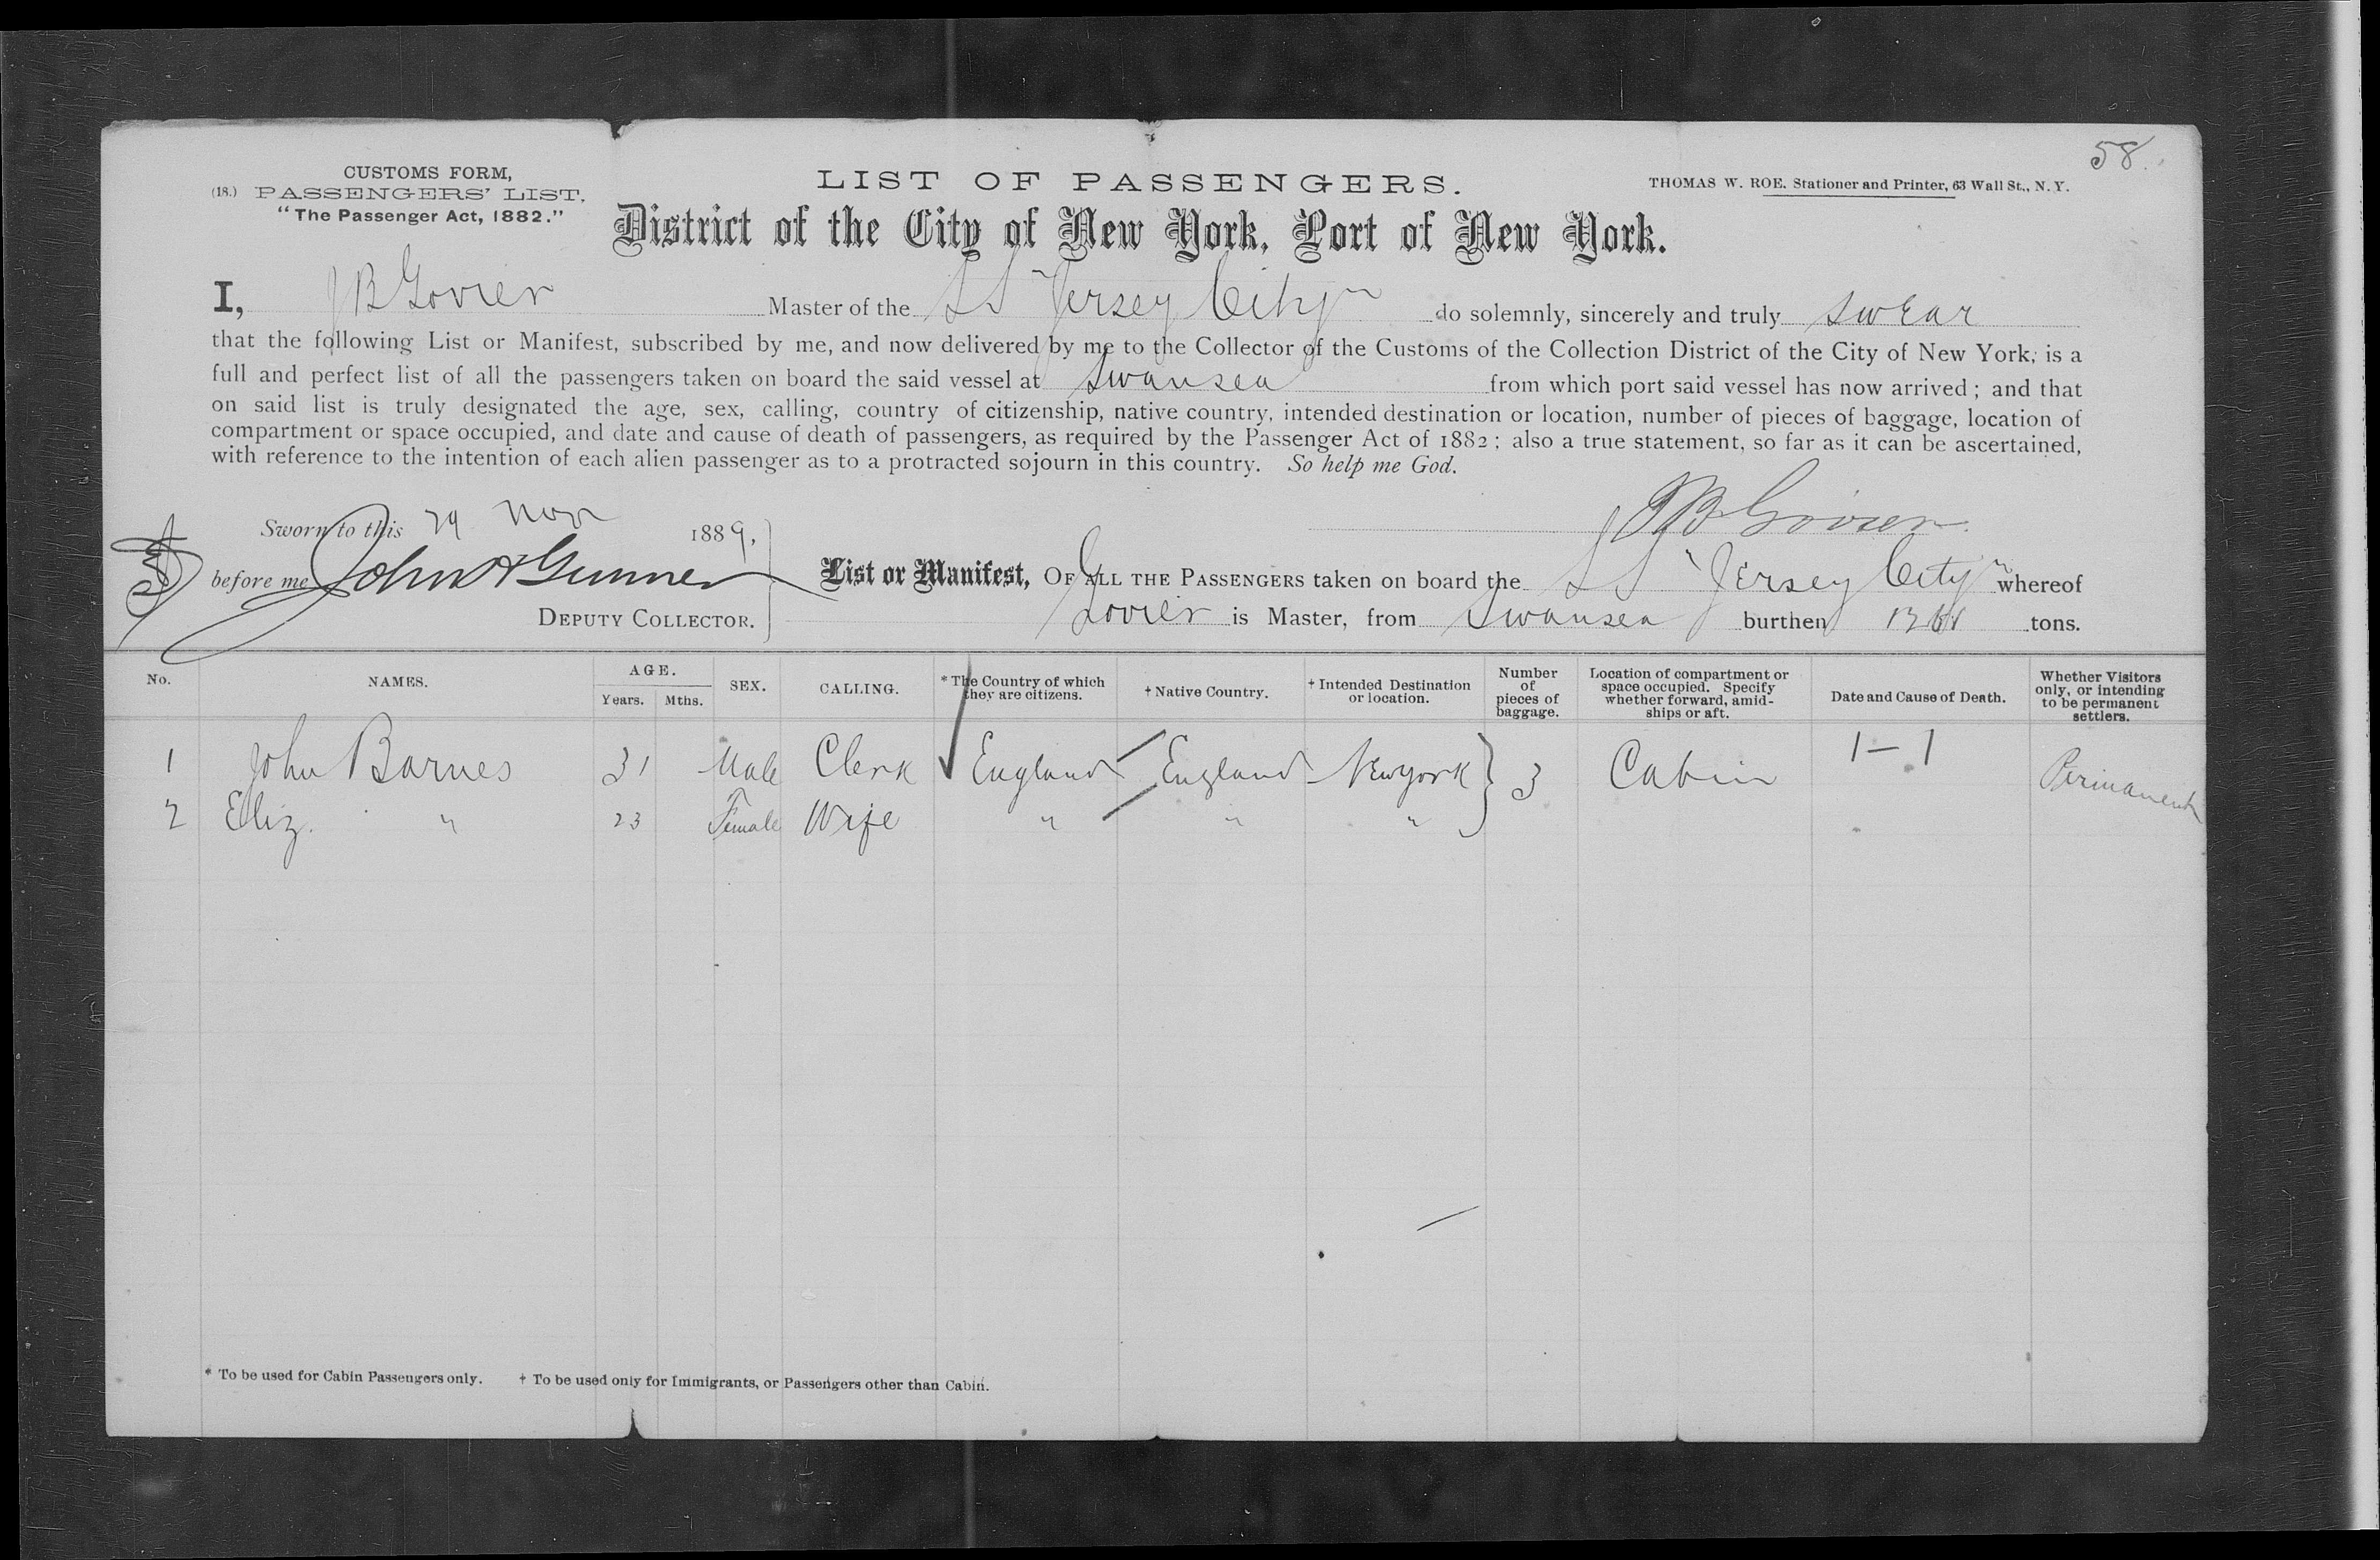 58.
CUSTOMS FORM,
(18.) PASSENGERS' LIST.
"The Passenger Act, 1882."
LIST OF PASSENGERS.
THOMAS W. ROE. Stationer and Printer, 63 Wall St., N. Y.
District of the City of New York, Port of New York.
I, J B Govier Master of the SS "Jersey City" do solemnly, sincerely and truly swear
that the following List or Manifest, subscribed by me, and now delivered by me to the Collector of the Customs of the Collection District of the City of New York, is a
full and perfect list of all the passengers taken on board the said vessel at Swansea from which port said vessel has now arrived; and that
on said list is truly designated the age, sex, calling, country of citizenship, native country, intended destination or location, number of pieces of baggage, location of
compartment or space occupied, and date and cause of death of passengers, as required by the Passenger Act of 1882; also a true statement, so far as it can be ascertained,
with reference to the intention of each alien passenger as to a protracted sojourn in this country. So help me God.
J B Govier
Sworn to this 29 Nov 1889,
before me John A Gunner
DEPUTY COLLECTOR.
List or Manifest, OF ALL THE PASSENGERS taken on board the SS "Jersey City" whereof
Govier is Master, from Swansea burthen tons.
No. NAMES. AGE. Years. Mths. SEX. CALLING. * The Country of which they are citizens. † Native Country. † Intended Destination or location. Number of pieces of baggage. Location of compartment or space occupied. Specify whether forward, amid-ships or aft. Date and Cause of Death. Whether Visitors only, or intending to be permanent settlers.
1 John Barnes 31 Male Clerk England England New york } 3 Cabin 1 – 1 Perimanent
2 Eliz. " 23 Female Wife " " "
* To be used for Cabin Passengers only. † To be used only for Immigrants, or Passengers other than Cabin.